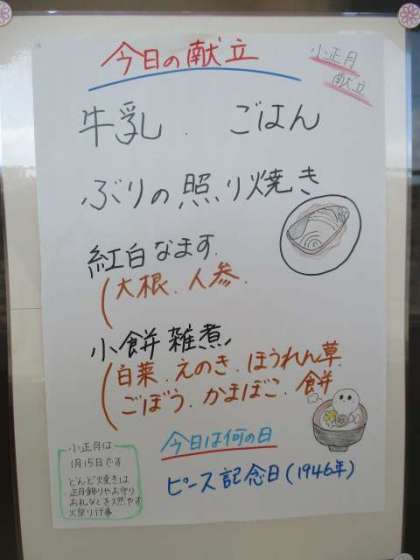 今日の献立
小正月
献立
牛乳. ごはん
ぶりの照り焼き
紅白なます
(大根.人参.
小餅雑煮
(白菜.えのき.ほうれん草.
ごぼう.かまぼこ.餅
今日は何の日
ピース記念日(1946年)
小正月は
1月15日です
どんど焼きは
正月飾りやお守り
お札などを燃やす
火祭り行事